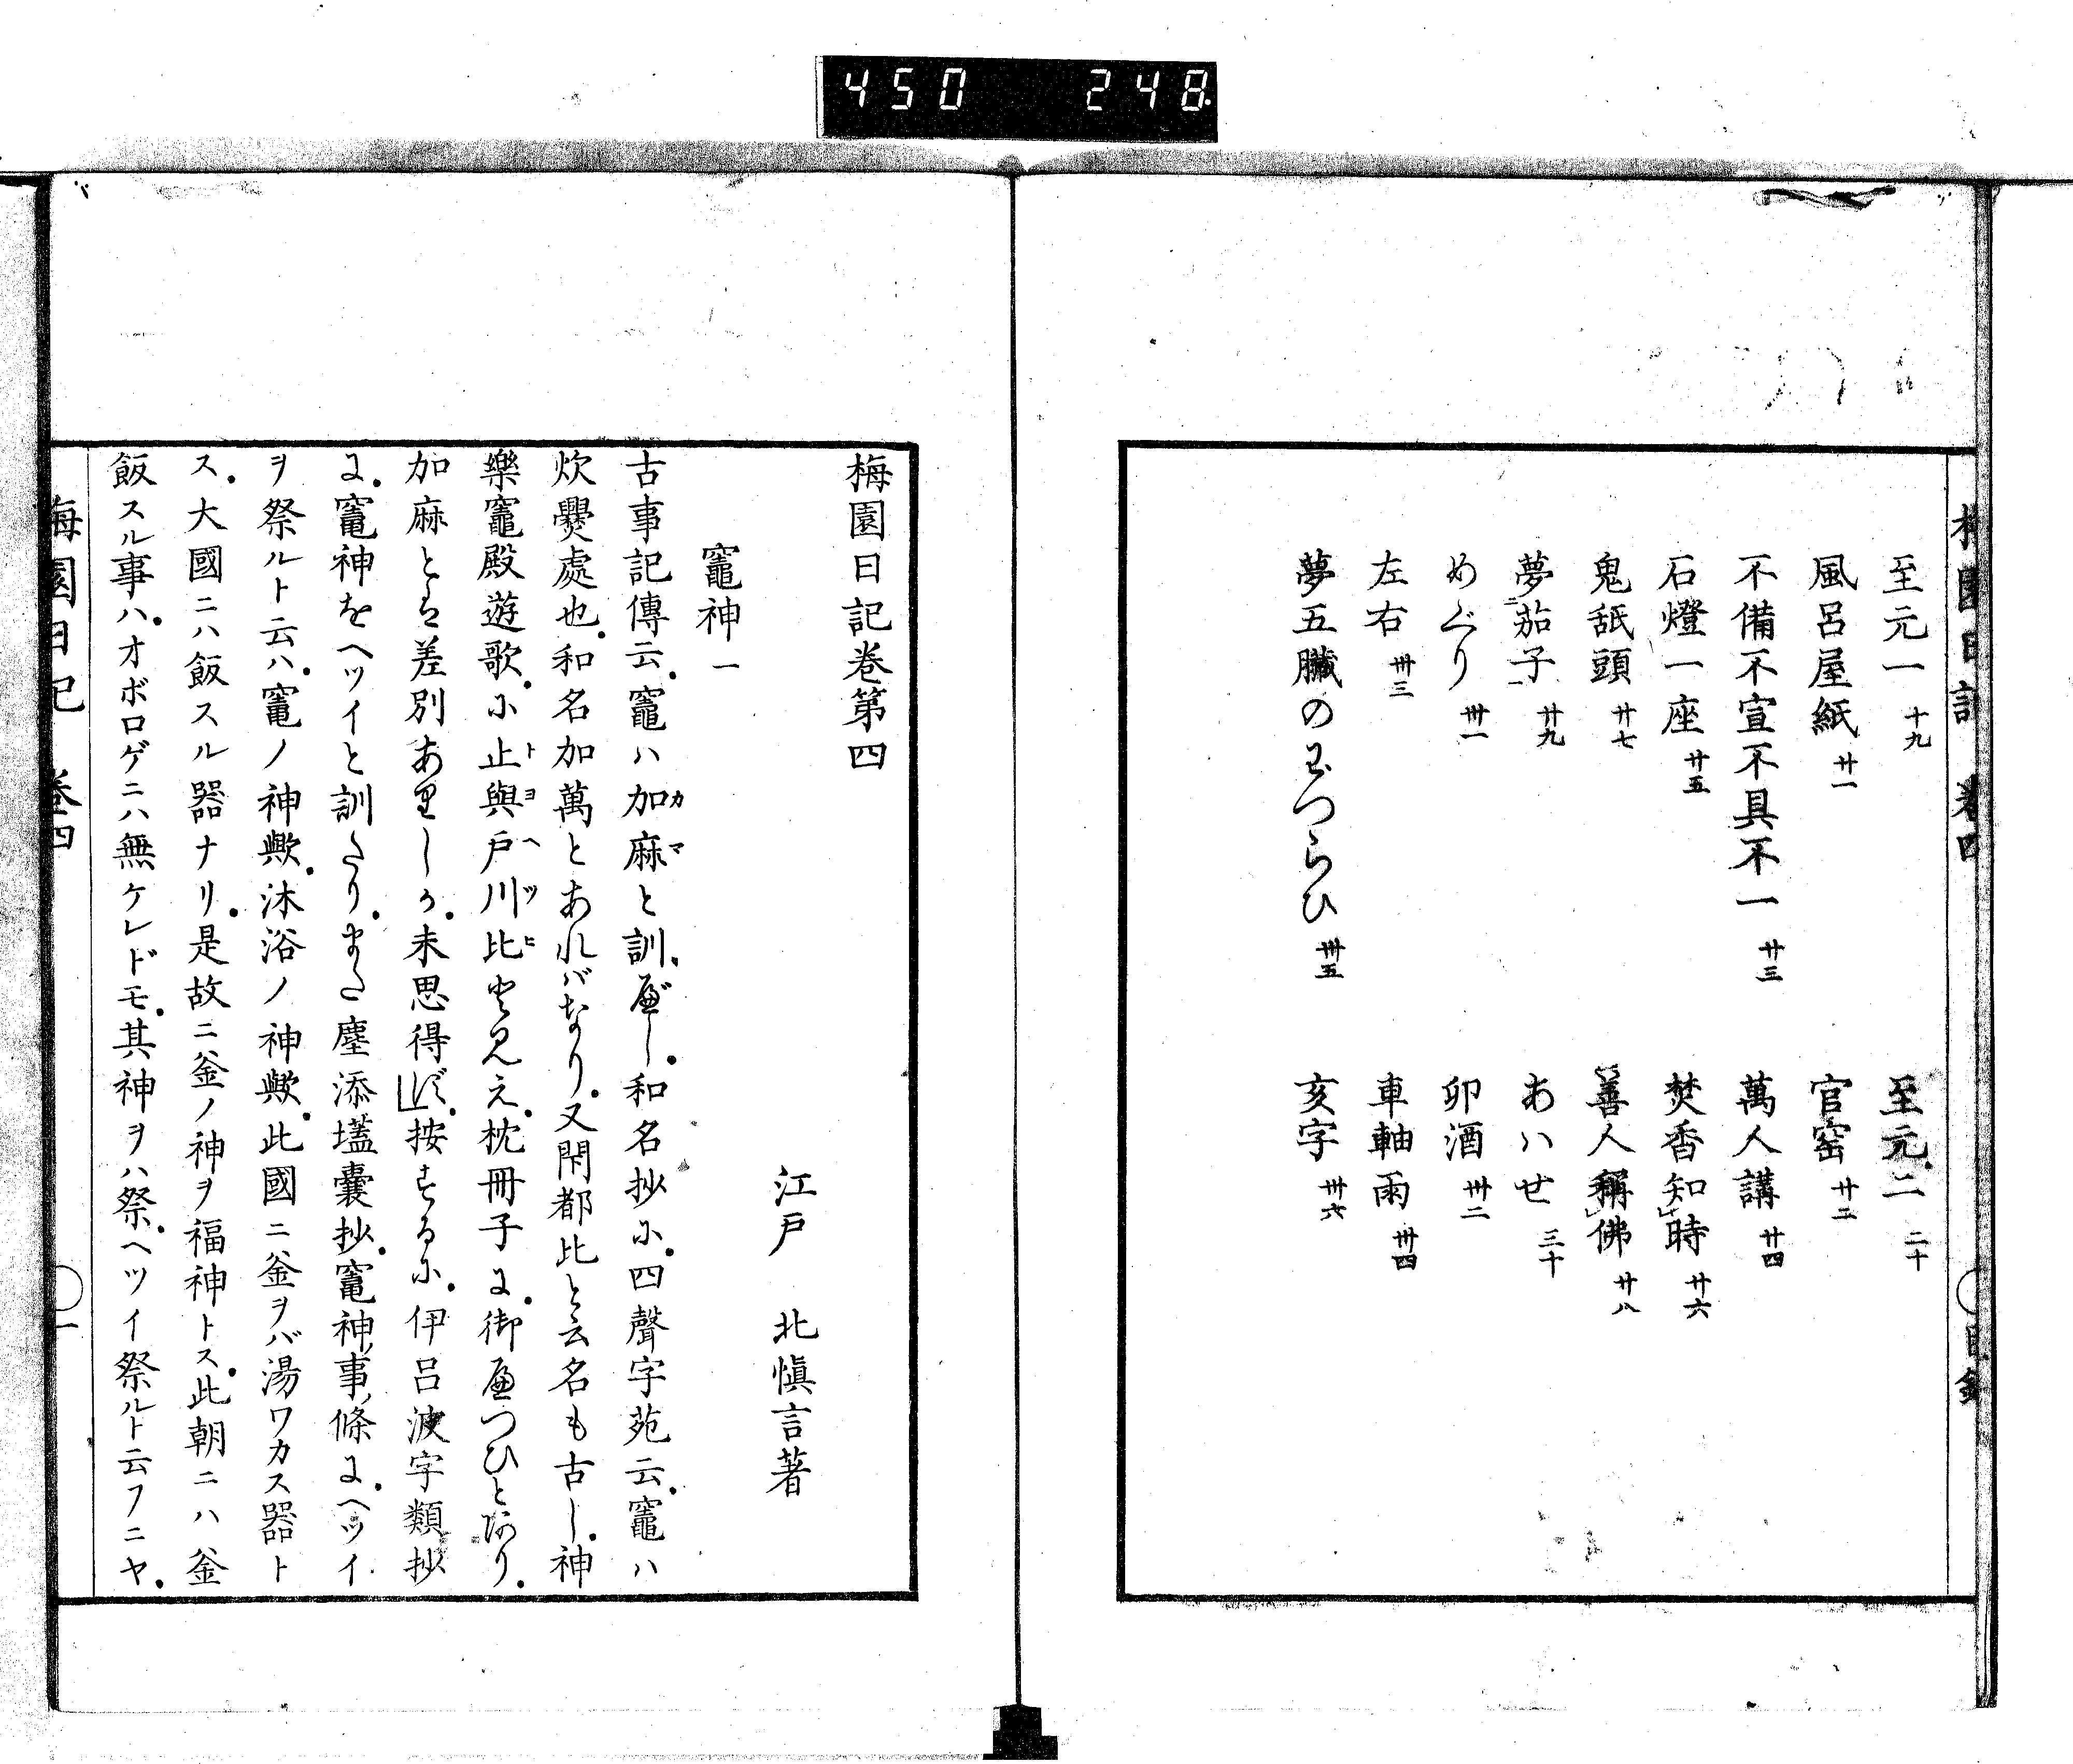 450 248
梅園日記 巻四 目録
至元一 十九
至元二 二十
風呂屋紙 廿一
官窑 廿二
不備不宣不具不一 廿三
萬人講 廿四
石燈一座 廿五
焚香知時 廿六
鬼舐頭 廿七
善人稱佛 廿八
夢茄子 廿九
あハせ 三十
めぐり 卅一
卯酒 卅二
左右 卅三
車軸雨 卅四
夢五臓のわづらひ 卅五
亥字 卅六
梅園日記巻第四
江戸 北愼言著
竈神一
古事記傳云、竈ハ加麻と訓べし、和名抄に、四聲字苑云、竈ハ
炊爨處也、和名加萬とあれバなり、又閇都比と云名も古し、神
樂竈殿遊歌に止與戸川比と見え、枕冊子に、御へつひとあり、
加麻とは差別ありしか、未思得ず」按ずるに、伊呂波字類抄
に、竈神をヘツイと訓たり、また塵添壒囊抄、竈神ノ事ノ條に、ヘツイ
ヲ祭ルト云ハ、竈ノ神歟、沐浴ノ神歟、此國ニ釜ヲバ湯ワカス器ト
ス、大國ニハ飯スル器ナリ、是故ニ釜ノ神ヲ福神トス、此朝ニハ釜
飯スル事ハ、オボロゲニハ無ケレドモ、其神ヲハ祭、ヘツイ祭ルト云フニヤ、
梅園日記 巻四 一